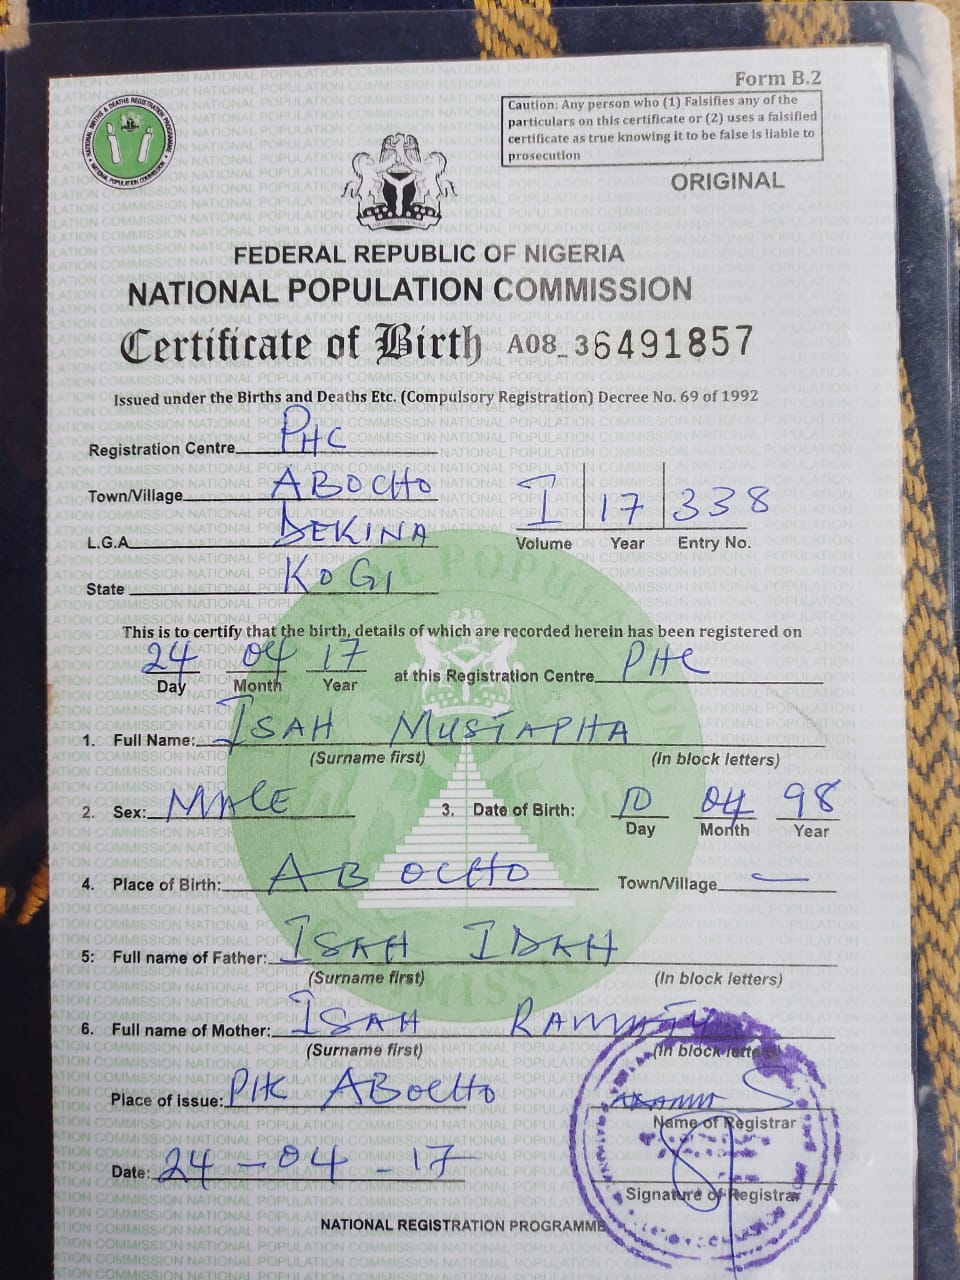 Form B.2
Caution: Any person who (1) Falsifies any of the
particulars on this certificate or (2) uses a falsified
certificate as true knowing it to be false is liable to
prosecution
ORIGINAL
NATIONAL BIRTHS & DEATHS REGISTRATION PROGRAMME
NATIONAL POPULATION COMMISSION
FEDERAL REPUBLIC OF NIGERIA
NATIONAL POPULATION COMMISSION
Certificate of Birth A08_36491857
Issued under the Births and Deaths Etc. (Compulsory Registration) Decree No. 69 of 1992
Registration Centre PHC
Town/Village ABOCHO
L.G.A DEKINA
State KOGI
I 17 338
Volume Year Entry No.
This is to certify that the birth, details of which are recorded herein has been registered on
24 04 17 at this Registration Centre PHC
Day Month Year
1. Full Name: ISAH MUSTAPHA
(Surname first) (In block letters)
2. Sex: MALE 3. Date of Birth: 10 04 98
Day Month Year
4. Place of Birth: ABOCHO Town/Village —
5: Full name of Father: ISAH IDAH
(Surname first) (In block letters)
6. Full name of Mother: ISAH
(Surname first) (In block letters)
Place of issue: PHC ABOCHO
Name of Registrar
Date: 24-04-17
Signature of Registrar
NATIONAL REGISTRATION PROGRAMME